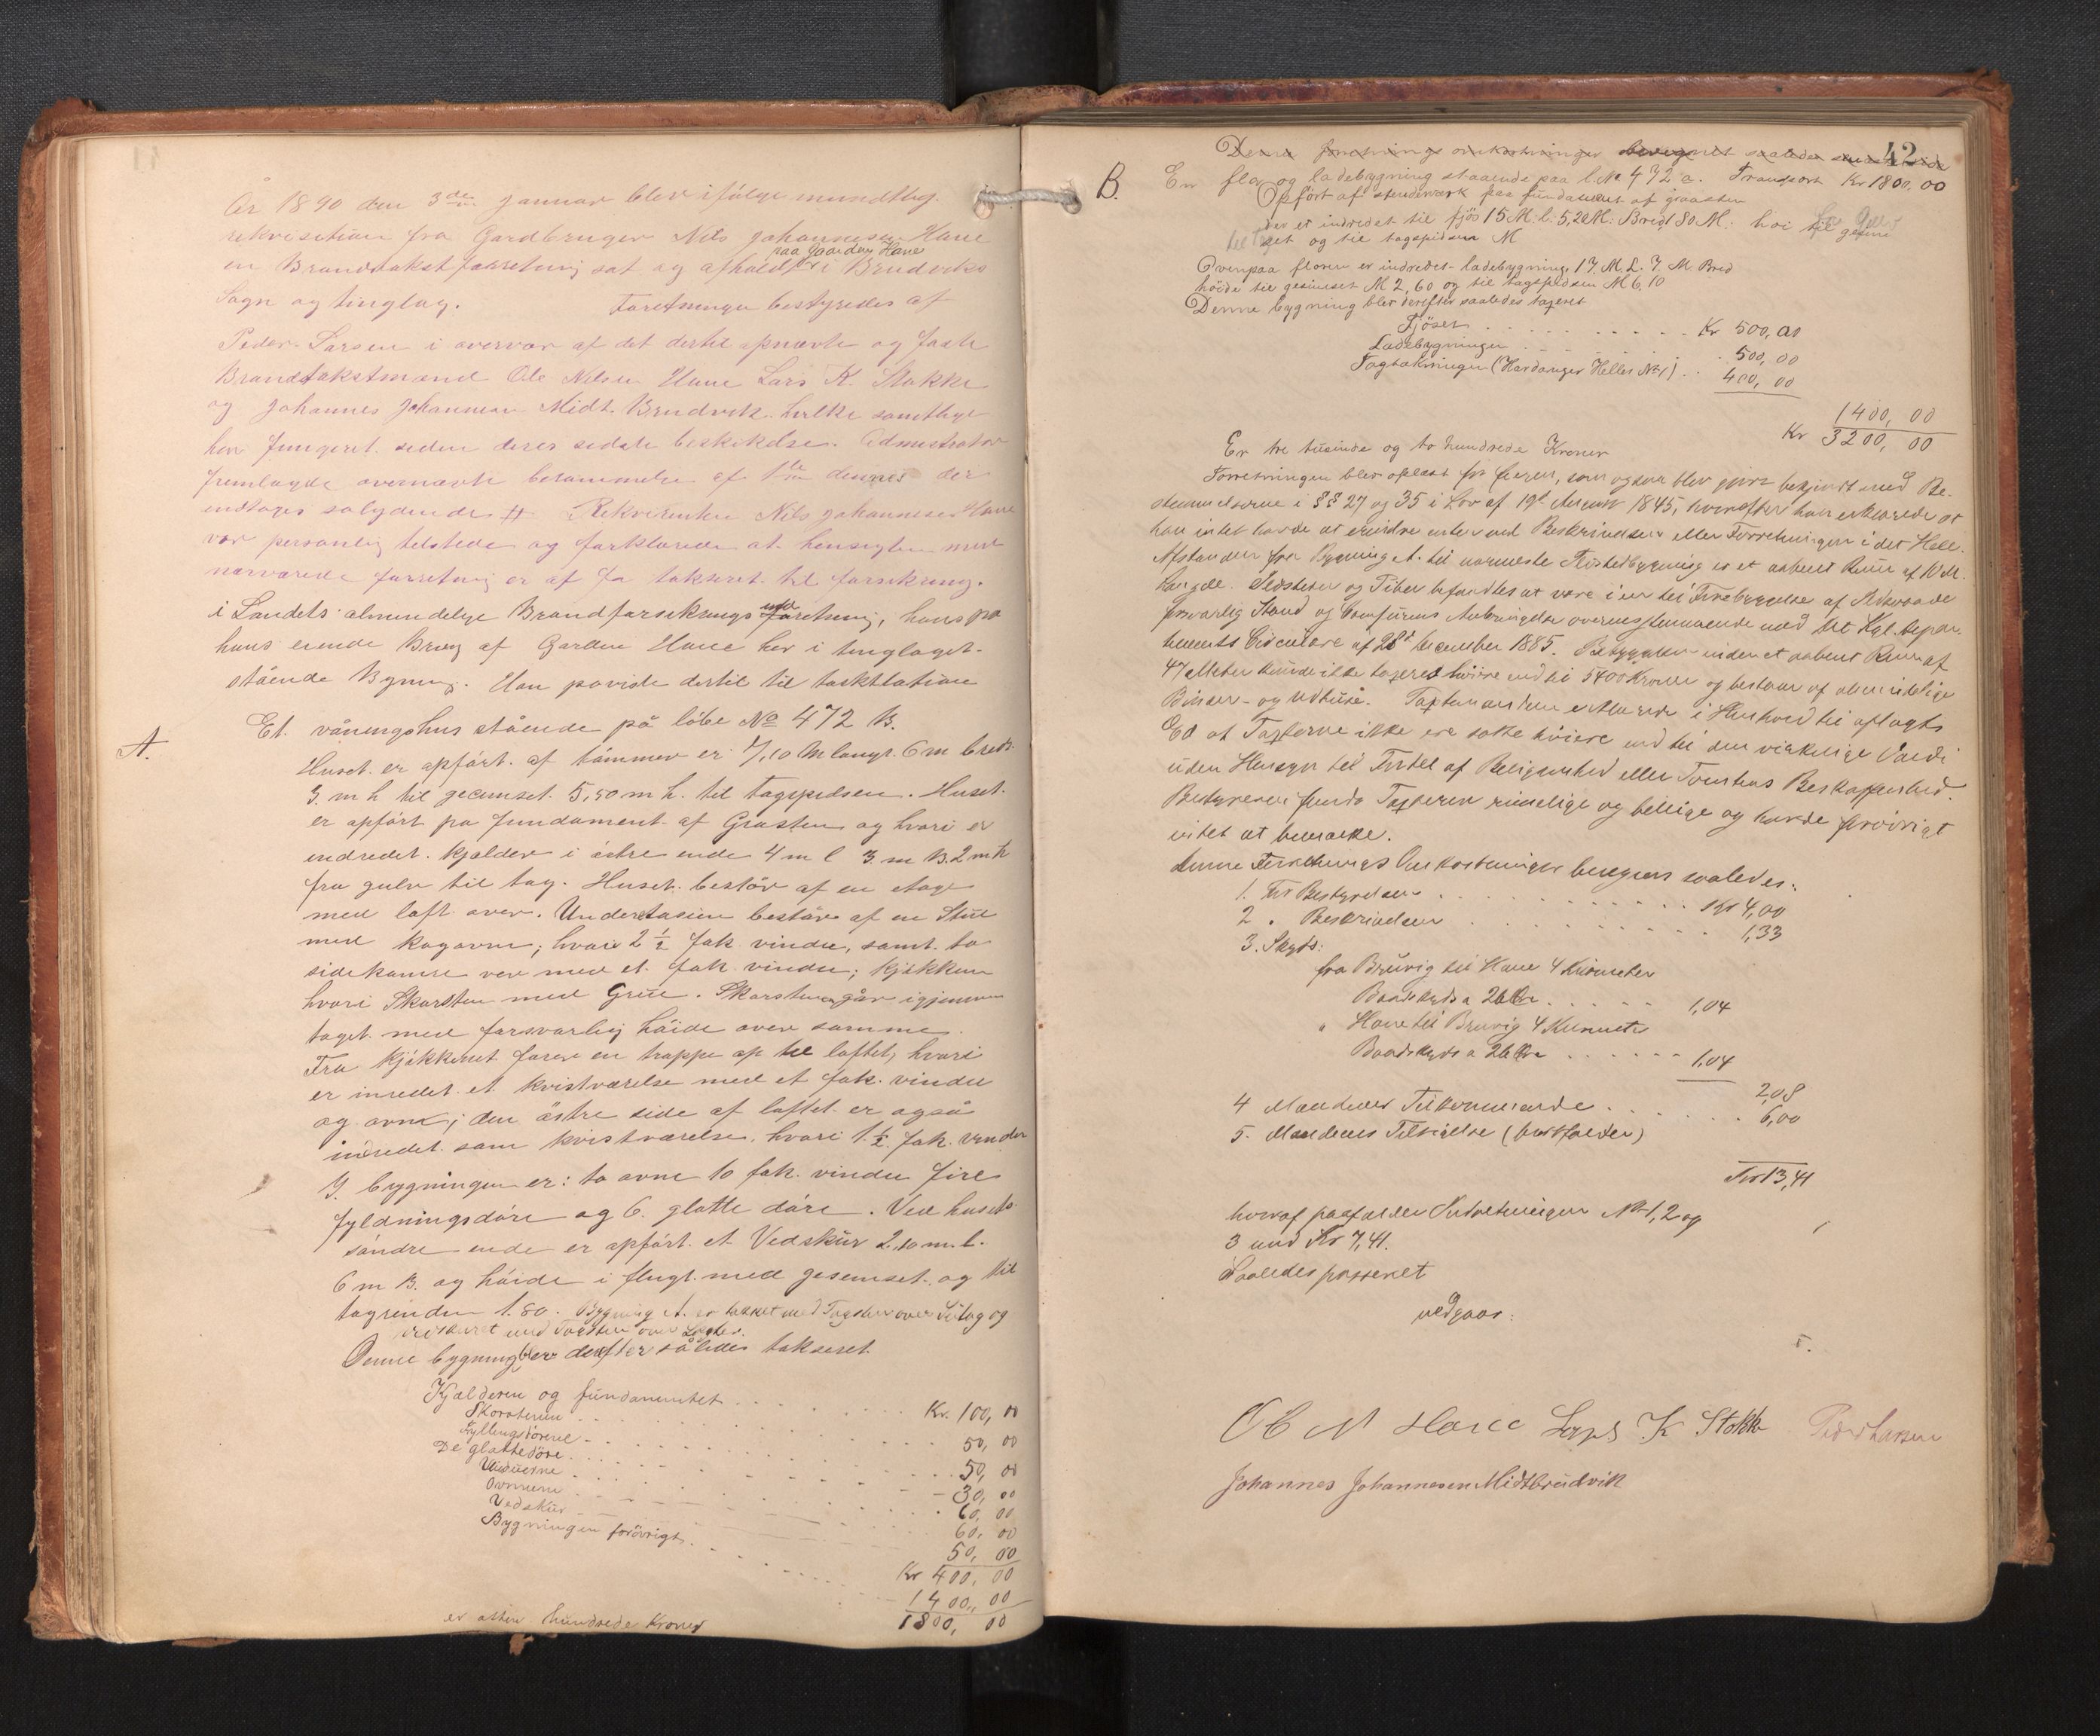 År 1890 den 3die Januar blev ifölge mundtlig
rekvisition fra Gardbruger Nils Johannesen Hane
paa Gaarden Hane
en Brandtakstforretning sat og afholdt i Brudviks
Sogn og tinglag. Foretningen bestyredes af
Peder Larsen i overvær af det dertil opnævte og faste
Brandtakstmænd Ole Nilsen Hane Lars K. Stokke
og Johannes Johannesen Midt. Brudvik. hvilke samtlige
har fungeret siden deres sidste beskikelse. Admistrator
fremlagde overnævte berammelse af 1ste dennes der
indtages salydende # Rekvirenten Nils Johannesen Hane
var personlig tilstede og forklarede at hensigten med
nærværede forretnig er at fa takseret til forsikring.
i Landets almindelige Brandforsikrings foretning, hans pa
hans eiende Brug af Garden Hane her i tinglaget
stående Bygning. Han paviste dertil til taksttation
A.
Et våningshus stående på löbe No 472 B.
Huset er opfört af tömmer er 7,10 M langt. 6 m bredt
3 m h til gecimset 5,50 m h. til tagspidsen. Huset
er opfört pa fundament af Grasten og hvori er
indredet. kjælder i östre ende 4 m l 3 m B. 2 m h
fra gulv til tag. Huset bestör af en etage
med loft over. Underetasien bestör af en Stue
med kogovn; hvori 2 1/2 fak vindu, samt to
sidekamre ver med et fak vindu; kjökken
hvori Skorsten med Grue. Skorstenen går igjennem
taget med forsvarlig höide over samme.
Fra kjökkenet förer en trappe op til loftet, hvori
er inredet et kvistværelse med et fak. vindu
og ovn; den östre side af loftet er også
inredet som kvistværelse, hvori 1 1/2 fak vinder
I bygningen er: to ovne 10 fak. vindu fire
fyldningsdöre og 6 glatte döre. Ved husets
söndre ende er opfört et Vedskur 2,10 m. l.
6 m B. og höide i flugt med gesimset og til
tagrenden 1.80. Bygning A. er tækket med Tagsten over Sutag og
med Tagsten over Lægter.
Denne bygning blev derefter således takseret
Kjælderen og fundamentet . . . Kr. 100, 00
Skorstenen . . . 50, 00
Fyllingsdörene . . . 50, 00
De glattedöre . . . 30, 00
Vinduerne . . . 60, 00
Ovnene . . . 60, 00
Vedskur . . . 50, 00
Kr 400, 00
Bygningen forövrigt . . . 1400, 00
er atten hundrede Kroner 1800, 00
42
Denne forretnings omkostninger beregnet saaledes
B.
En flor og ladebygning staaende paa l. No 472 a. Transport Kr 1800, 00
Opfört af stenderværk paa fundament af graasten
der er indredet til fjös 15 M. l. 5,20 M. Bred 80 M. höi til gesim
set og til tagspidsen M
Ovenpaa floren er indredet ladebygning 17 M. L. 7 M Bred
höide til gesimset M 2,60 og til tagspidsen M 6,10
Denne bygning blev derefter saaledes taxeret
Fjösen . . . Kr 500, 00
Ladebygningen . . . 500, 00
Tagtækningen (Hardanger Heller No 1) . . 400, 00
1400, 00
Kr 3200, 00
Er tre tusinde og to hundrede Kroner
Forretningen blev oplæst for Eieren, som ogsaa blev gjort bekjendt med Be-
stemmelserne i §§ 27 og 35 i Lov af 19de August 1845, hvorefter han erklærede at
han intet havde at erindre enten ved Beskrivelsen eller Forretningen i det Hele.
Afstanden fra Bygning A. til nærmeste Ildstedbygning er et aabent Rum af 10 M.
Længde. Ildsteder og Piber befandtes at være i en til Forebyggelse af Ildsvaade
forsvarlig Stand og Comfurens Anbringelse overensstemmende med Det Kgl. Depar-
tements Circulære af 28de December 1885. Bebyggelsen inden et aabent Rum af
47 Meter kunde ikke taxeres höiere end til 5400 Kroner og bestaar af almindelige
Bönder- og Udhuse. Taxtmændene erklærede i Henhold til aflagts
Ed at Taxterne ikke ere satte höiere end til den virkelige Værdi
uden Hensyn til Fordel af Beligenhed eller Tomtens Beskaffenhed.
Bestyreren fandt Taxterne rimelige og billige og havde forövrigt
intet at bemærke.
Denne Forretnings Omkostninger beregnes saaledes:
1. For Bestyrelsen . . . Kr 4,00
2 " Beskrivelsen . . . 1,33
3. Skyds:
fra Bruvig til Hane 4 Kilometer
Baadskyds a 26 Øre . . . 1,04
" Hane til Bruvig 4 Kilometer
Baadskyds a 26 Øre . . . 1,04
2,08
4 Mændenes Tilkommende . . . 6,00
5. Mændenes Tilsigelse (bortfalder)
Kr 13,41
hvoraf paafalder Indretningen No 1, 2 og
3 med Kr 7,41.
Saaledes passeret
vedgaar:
Ole N Hane Lars K Stokke Peder Larsen
Johannes Johannesen Midtbrudvik